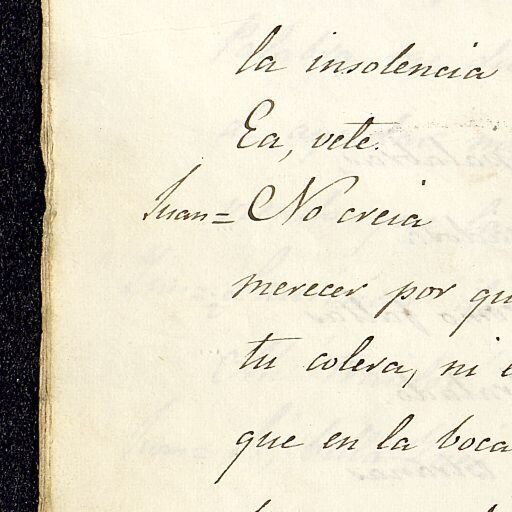 la insolencia
Ea, vete.
Juan= No creia
merecer por
tu colera, ni
que en la boca